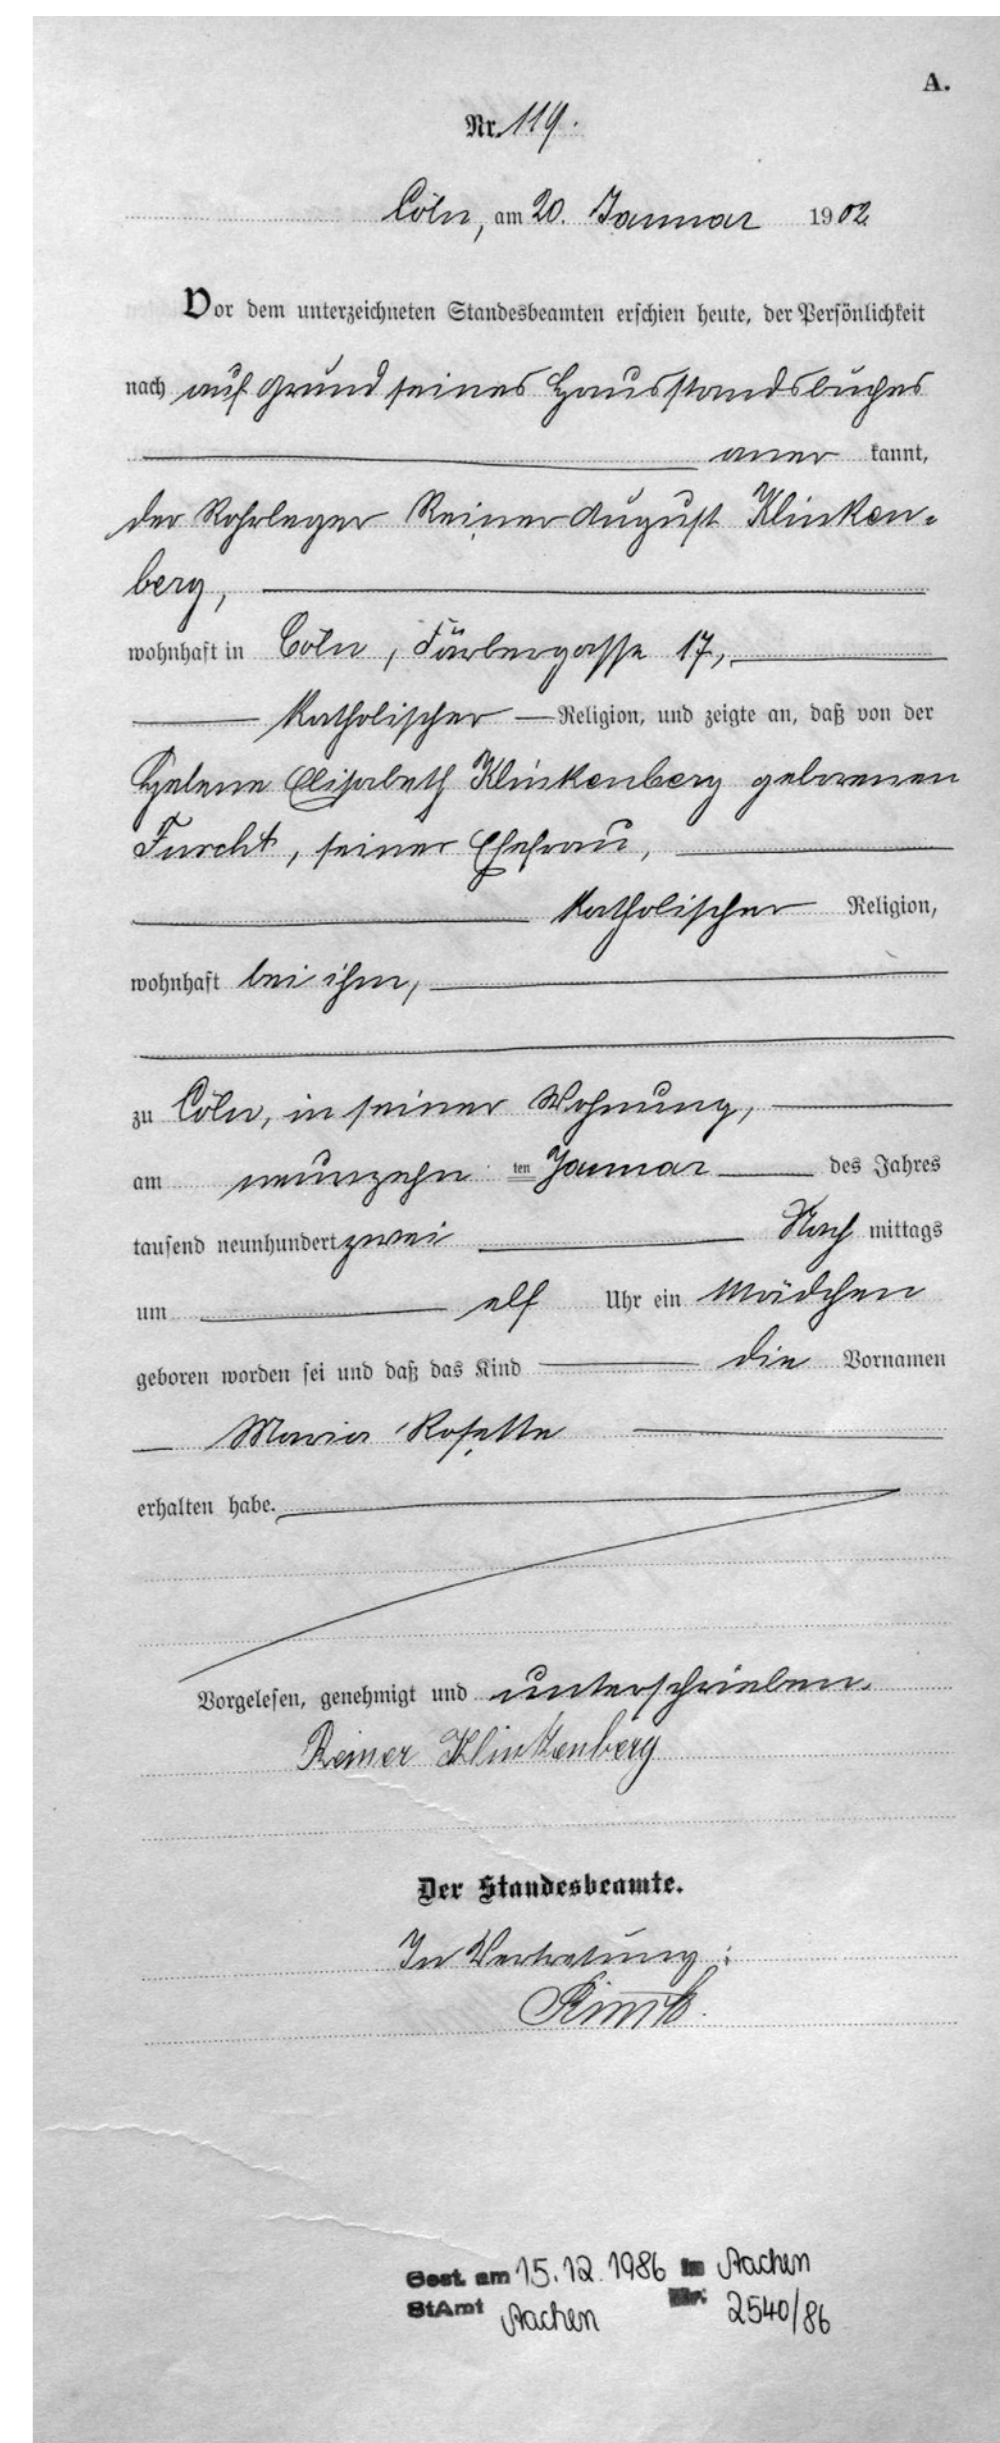 A.
Nr. 119.
Cöln, am 20. Januar 1902
Vor dem unterzeichneten Standesbeamten erschien heute, der Persönlichkeit
nach auf Grund seines Hausstandsbuches
aner kannt,
der Rohrleger Reiner August Klinken-
berg,
wohnhaft in Cöln, Färbergasse 17,
katholischer Religion, und zeigte an, daß von der
Helene Elisabeth Klinkenberg geborenen
Furcht, seiner Ehefrau,
katholischer Religion,
wohnhaft bei ihm,
zu Cöln, in seiner Wohnung,
am neunzehn ten Januar des Jahres
tausend neunhundert zwei Nach mittags
um elf Uhr ein Mädchen
geboren worden sei und daß das Kind die Vornamen
Maria Rosette
erhalten habe.
Vorgelesen, genehmigt und unterschrieben.
Reiner Klinkenberg
Der Standesbeamte.
In Vertretung:
Gest. am 15.12.1986 in Aachen
StAmt Aachen Nr. 2540/86